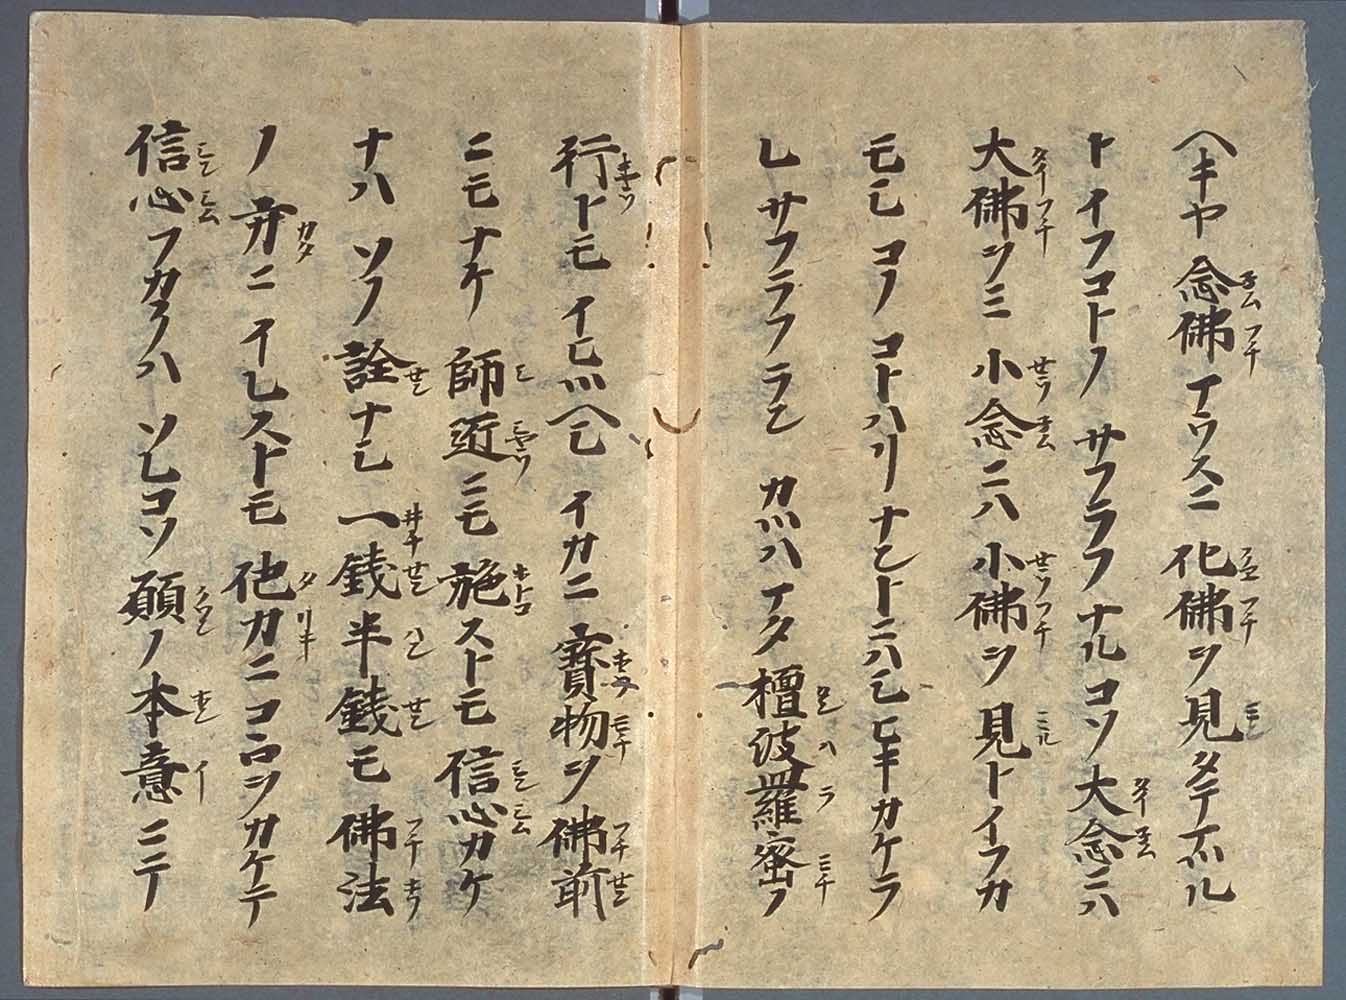 ヘキヤ念佛マウスニ化佛ヲ見タテマツル
トイフコトノサフラフナルコソ大念ニハ
大佛ヲミ小念ニハ小佛ヲ見トイフカ
モシコノコトハリナントニハシヒキカケラ
レサフラフラン カツハマタ檀波羅蜜ノ
行トモイヒツヘシイカニ寶物ヲ佛前
ニモナケ師匠ニモ施ストモ信心カケ
ナハソノ詮ナシ一錢半錢モ佛法
ノ方ニイレストモ他力ニコヽロヲカケテ
信心フカクハソレコソ願ノ本意ニテ